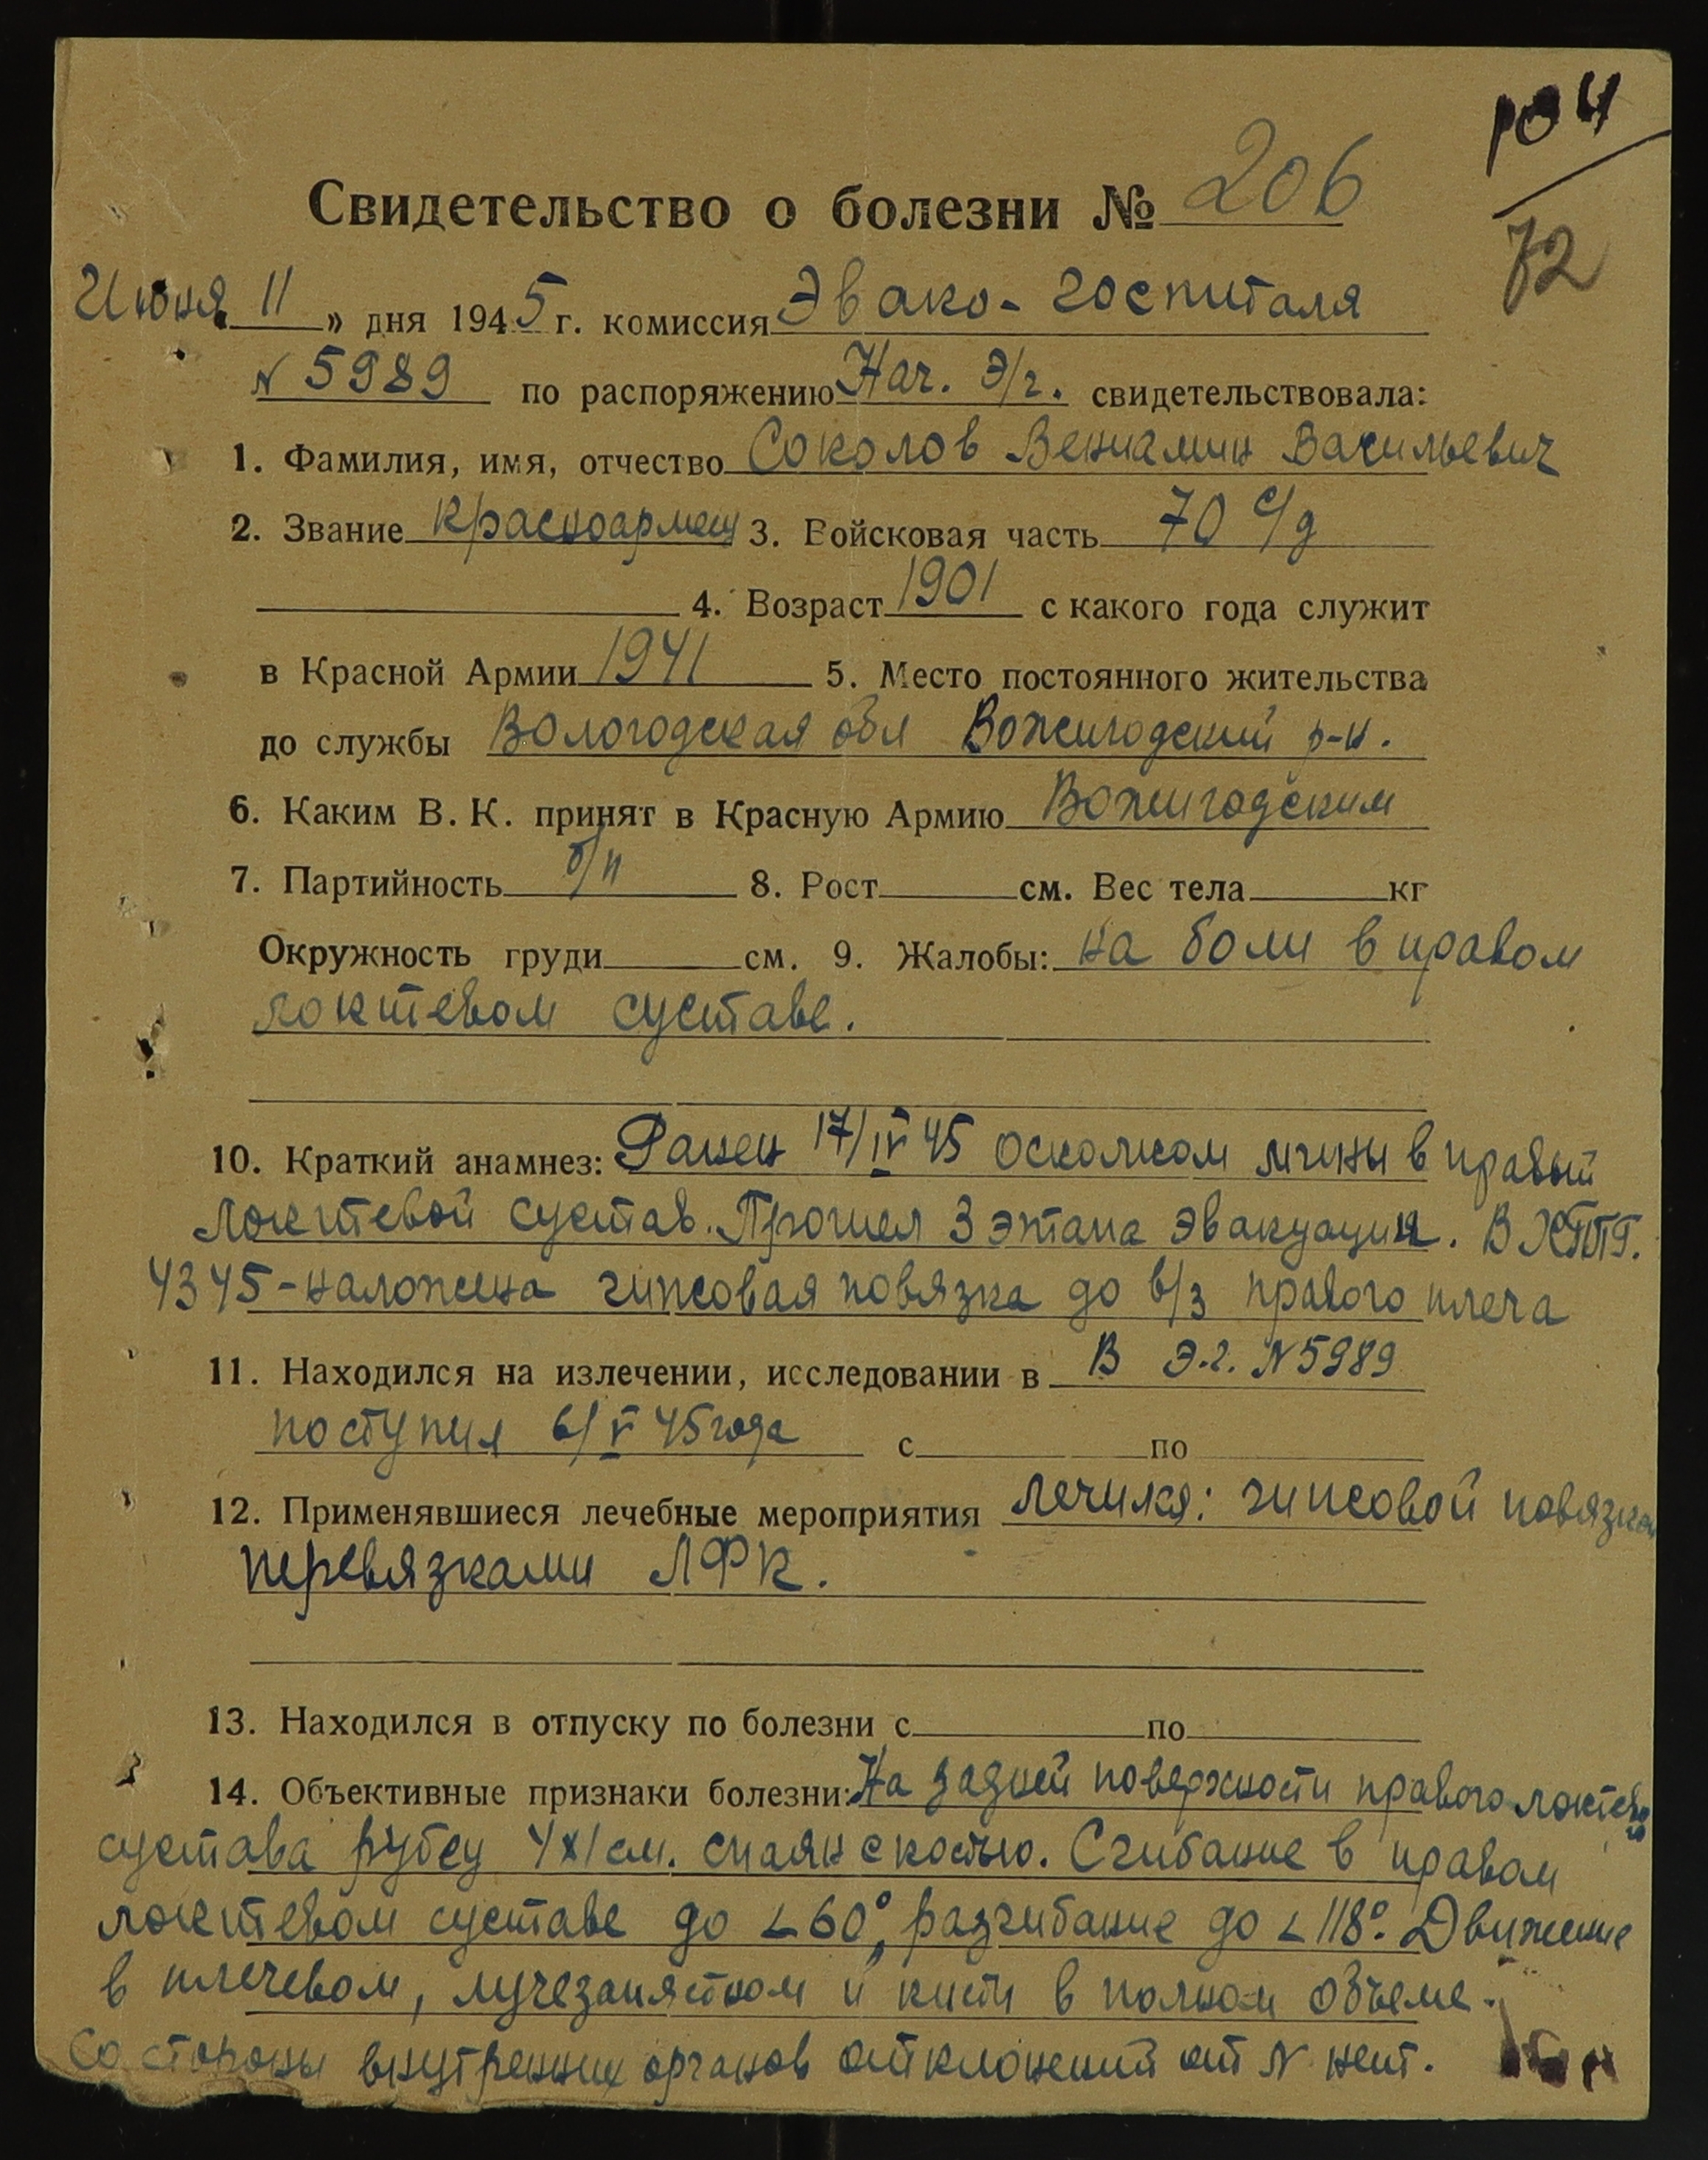 Свидетельство о болезни № 206
72
Июня „ 11 » дня 1945 г. комиссия Эвако-госпиталя
N 5989 по распоряжению Нач. Э/г. свидетельствовала:
1. Фамилия, имя, отчество Соколов Вениамин Васильевич
2. Звание красноармеец 3. Войсковая часть 70 с/д
4. Возраст 1901 с какого года служит
в Красной Армии 1941 5. Место постоянного жительства
до службы Вологодская обл Вожегодский р-н.
6. Каким В. К. принят в Красную Армию Вожегодским
7. Партийность б/п 8. Рост см. Вес тела кг
Окружность груди см. 9. Жалобы: на боли в правом
локтевом суставе.
10. Краткий анамнез: Ранен 17/IV 45 осколком мины в правый
локтевой сустав. Прошел 3 этапа эвакуации. В ХППГ.
4345 - наложена гипсовая повязка до в/з правого плеча
11. Находился на излечении, исследовании в В Э.г. N 5989
поступил 6/V 45 года с по
12. Применявшиеся лечебные мероприятия лечился: гипсовой повязкой
перевязками ЛФК.
13. Находился в отпуску по болезни с по
14. Объективные признаки болезни: На задней поверхности правого локтевого
сустава рубец 4х1 см. спаян с костью. Сгибание в правом
локтевом суставе до ∠60°, разгибание до ∠118°. Движение
в плечевом, лучезапястном и кисти в полном объеме.
Со стороны внутренних органов отклонений от N нет.